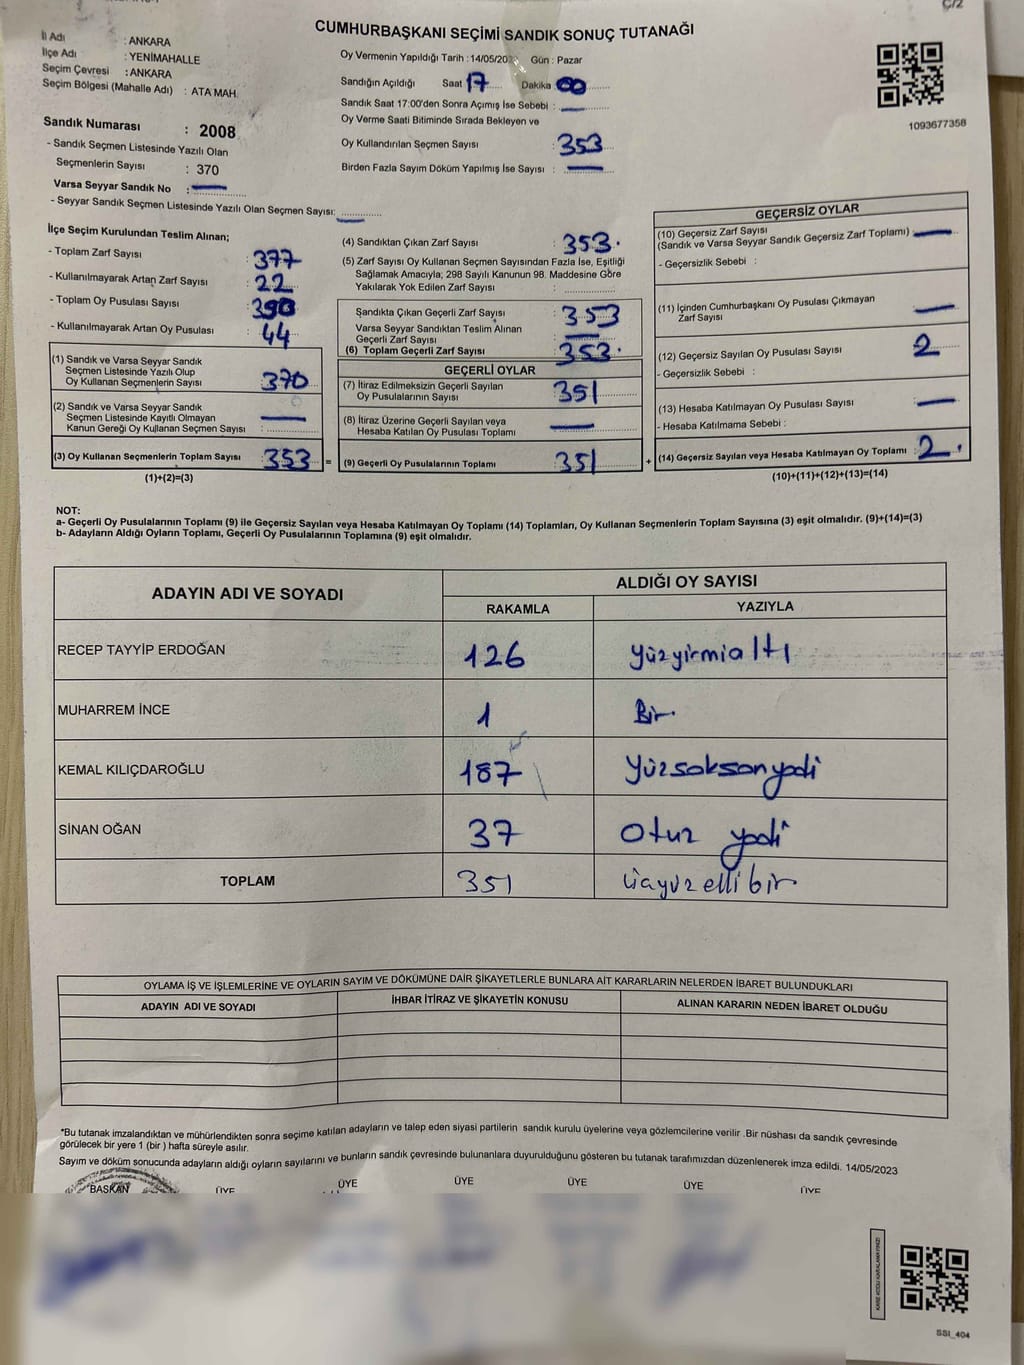 C/2
CUMHURBAŞKANI SEÇİMİ SANDIK SONUÇ TUTANAĞI
İl Adı : ANKARA
İlçe Adı : YENİMAHALLE
Seçim Çevresi : ANKARA
Seçim Bölgesi (Mahalle Adı) : ATA MAH.
Oy Vermenin Yapıldığı Tarih : 14/05/20 Gün : Pazar
Sandığın Açıldığı Saat 17 Dakika 00
Sandık Saat 17:00'den Sonra Açımış İse Sebebi : —
Oy Verme Saati Bitiminde Sırada Bekleyen ve
Oy Kullandırılan Seçmen Sayısı : 353
Birden Fazla Sayım Döküm Yapılmış İse Sayısı : —
1093677358
Sandık Numarası : 2008
- Sandık Seçmen Listesinde Yazılı Olan
Seçmenlerin Sayısı : 370
Varsa Seyyar Sandık No : —
- Seyyar Sandık Seçmen Listesinde Yazılı Olan Seçmen Sayısı: —
İlçe Seçim Kurulundan Teslim Alınan;
- Toplam Zarf Sayısı : 377
- Kullanılmayarak Artan Zarf Sayısı : 22
- Toplam Oy Pusulası Sayısı :
- Kullanılmayarak Artan Oy Pusulası : 44
(1) Sandık ve Varsa Seyyar Sandık
Seçmen Listesinde Yazılı Olup
Oy Kullanan Seçmenlerin Sayısı : 370
(2) Sandık ve Varsa Seyyar Sandık
Seçmen Listesinde Kayıtlı Olmayan
Kanun Gereği Oy Kullanan Seçmen Sayısı : —
(3) Oy Kullanan Seçmenlerin Toplam Sayısı : 353 =
(1)+(2)=(3)
(4) Sandıktan Çıkan Zarf Sayısı : 353.
(5) Zarf Sayısı Oy Kullanan Seçmen Sayısından Fazla İse, Eşitliği
Sağlamak Amacıyla; 298 Sayılı Kanunun 98. Maddesine Göre
Yakılarak Yok Edilen Zarf Sayısı :
Sandıkta Çıkan Geçerli Zarf Sayısı : 353
Varsa Seyyar Sandıktan Teslim Alınan
Geçerli Zarf Sayısı : —
(6) Toplam Geçerli Zarf Sayısı : 353.
GEÇERLİ OYLAR
(7) İtiraz Edilmeksizin Geçerli Sayılan
Oy Pusulalarının Sayısı : 351
(8) İtiraz Üzerine Geçerli Sayılan veya
Hesaba Katılan Oy Pusulası Toplamı : —
(9) Geçerli Oy Pusulalarının Toplamı : 351 +
GEÇERSİZ OYLAR
(10) Geçersiz Zarf Sayısı
(Sandık ve Varsa Seyyar Sandık Geçersiz Zarf Toplamı) : —
- Geçersizlik Sebebi :
(11) İçinden Cumhurbaşkanı Oy Pusulası Çıkmayan
Zarf Sayısı : —
(12) Geçersiz Sayılan Oy Pusulası Sayısı : 2
- Geçersizlik Sebebi :
(13) Hesaba Katılmayan Oy Pusulası Sayısı : —
- Hesaba Katılmama Sebebi :
(14) Geçersiz Sayılan veya Hesaba Katılmayan Oy Toplamı : 2.
(10)+(11)+(12)+(13)=(14)
NOT:
a- Geçerli Oy Pusulalarının Toplamı (9) ile Geçersiz Sayılan veya Hesaba Katılmayan Oy Toplamı (14) Toplamları, Oy Kullanan Seçmenlerin Toplam Sayısına (3) eşit olmalıdır. (9)+(14)=(3)
b- Adayların Aldığı Oyların Toplamı, Geçerli Oy Pusulalarının Toplamına (9) eşit olmalıdır.
ADAYIN ADI VE SOYADI ALDIĞI OY SAYISI
RAKAMLA YAZIYLA
RECEP TAYYİP ERDOĞAN 126 yüzyirmialtı
MUHARREM İNCE 1 Bir
KEMAL KILIÇDAROĞLU 187 Yüzseksenyedi
SİNAN OĞAN 37 Otuz yedi
TOPLAM 351 üçyüzellibir
OYLAMA İŞ VE İŞLEMLERİNE VE OYLARIN SAYIM VE DÖKÜMÜNE DAİR ŞİKAYETLERLE BUNLARA AİT KARARLARIN NELERDEN İBARET BULUNDUKLARI
ADAYIN ADI VE SOYADI İHBAR İTİRAZ VE ŞİKAYETİN KONUSU ALINAN KARARIN NEDEN İBARET OLDUĞU
*Bu tutanak imzalandıktan ve mühürlendikten sonra seçime katılan adayların ve talep eden siyasi partilerin sandık kurulu üyelerine veya gözlemcilerine verilir .Bir nüshası da sandık çevresinde
görülecek bir yere 1 (bir ) hafta süreyle asılır.
Sayım ve döküm sonucunda adayların aldığı oyların sayılarını ve bunların sandık çevresinde bulunanlara duyurulduğunu gösteren bu tutanak tarafımızdan düzenlenerek imza edildi. 14/05/2023
BAŞKAN ÜYE ÜYE ÜYE ÜYE ÜYE ÜYE
SSI_404